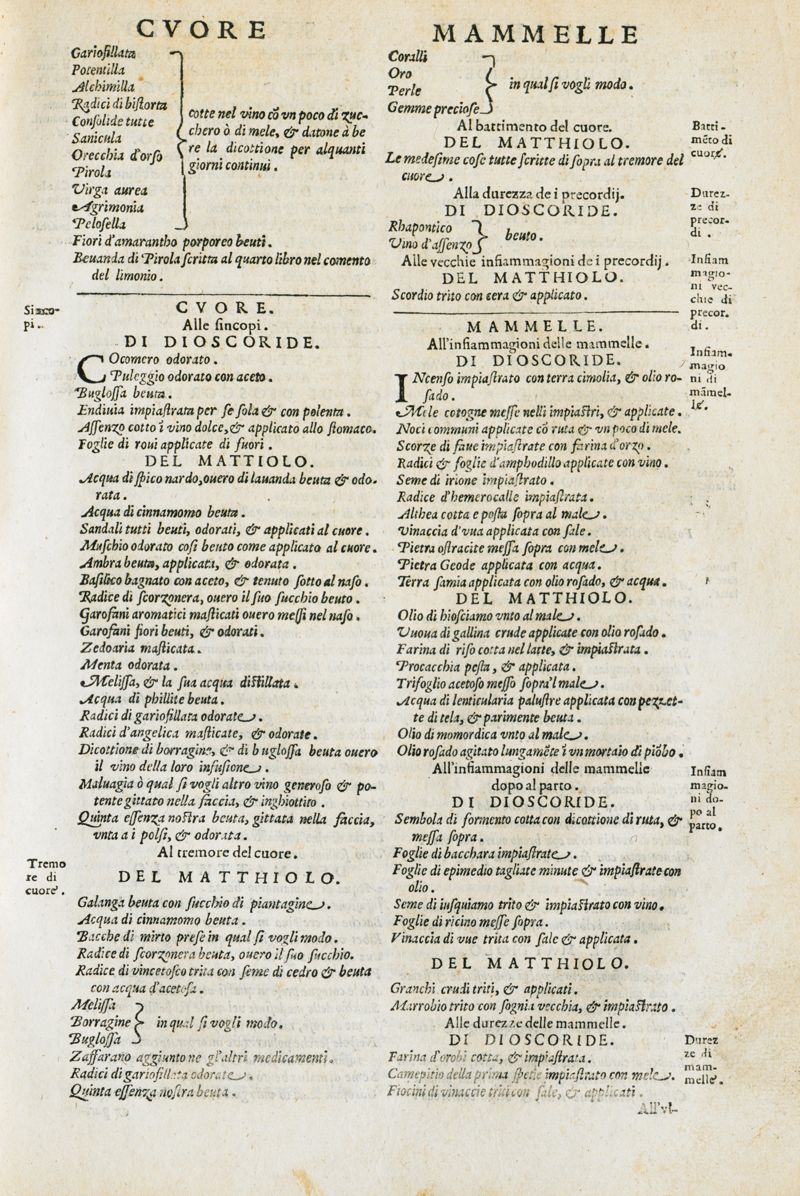 CVORE
Gariofillata
Potentilla
Alchimilla
Radici di bistorta
Consolide tutte
Sanicula
Orecchia d'orso
Pirola
Virga aurea
Agrimonia
Pelosella
cotte nel vino cõ vn poco di zuc-
chero ò di mele, & datone à be
re la dicottione per alquanti
giorni continui.
Fiori d'amarantho porporeo beuti.
Beuanda di Pirola scritta al quarto libro nel comento
del limonio.
CVORE.
Sinco-
pi.
Alle sincopi.
DI DIOSCORIDE.
COcomero odorato.
Puleggio odorato con aceto.
Buglossa beuta.
Endiuia impiastrata per se sola & con polenta.
Assenzo cotto ĩ vino dolce, & applicato allo stomaco.
Foglie di roui applicate di fuori.
DEL MATTIOLO.
Acqua di spico nardo, ouero di lauanda beuta & odo-
rata.
Acqua di cinnamomo beuta.
Sandali tutti beuti, odorati, & applicati al cuore.
Muschio odorato cosi beuto come applicato al cuore.
Ambra beuta, applicata, & odorata.
Basilico bagnato con aceto, & tenuto sotto al naso.
Radice di scorzonera, ouero il suo succhio beuto.
Garofani aromatici masticati ouero messi nel naso.
Garofani fiori beuti, & odorati.
Zedoaria masticata.
Menta odorata.
Melissa, & la sua acqua distillata.
Acqua di phillite beuta.
Radici di gariofillata odorate.
Radici d'angelica masticate, & odorate.
Dicottione di borragine, & di buglossa beuta ouero
il vino della loro infusione.
Maluagia ò qual si vogli altro vino generoso & po-
tente gittato nella faccia, & inghiottito.
Quinta essenza nostra beuta, gittata nella faccia,
vnta a i polsi, & odorata.
Al tremore del cuore.
Tremo
re di
cuore.
DEL MATTHIOLO.
Galanga beuta con succhio di piantagine.
Acqua di cinnamomo beuta.
Bacche di mirto prese in qual si vogli modo.
Radice di scorzonera beuta, ouero il suo succhio.
Radice di vincetosco trita con seme di cedro & beuta
con acqua d'acetosa.
Melissa
Borragine
Buglossa
in qual si vogli modo.
Zaffarano aggiunto ne gl'altri medicamenti.
Radici di gariofillata odorate.
Quinta essenza nostra beuta.
MAMMELLE
Coralli
Oro
Perle
Gemme preciose
in qual si vogli modo.
Al battimento del cuore.
Batti-
mẽto di
cuore.
DEL MATTHIOLO.
Le medesime cose tutte scritte di sopra al tremore del
cuore.
Alla durezza de i precordij.
Durez-
ze di
precor-
di.
DI DIOSCORIDE.
Rhapontico
Vino d'assenzo
beuto.
Alle vecchie infiammagioni de i precordij.
Infiam
magio-
ni vec-
chie di
precor.
di.
DEL MATTHIOLO.
Scordio trito con cera & applicato.
MAMMELLE.
All'infiammagioni delle mammelle.
Infiam.
magio
ni di
mãmel-
le.
DI DIOSCORIDE.
INcenso impiastrato con terra cimolia, & olio ro-
sado.
Mele cotogne messe nelli impiastri, & applicate.
Noci communi applicate cõ ruta & vn poco di mele.
Scorze di faue impiastrate con farina d'orzo.
Radici & foglie d'amphodillo applicate con vino.
Seme di irione impiastrato.
Radice d'hemerocalle impiastrata.
Althea cotta e posta sopra al male.
Vinaccia d'vua applicata con sale.
Pietra ostracite messa sopra con mele.
Pietra Geode applicata con acqua.
Terra samia applicata con olio rosado, & acqua.
DEL MATTHIOLO.
Olio di hiosciamo vnto al male.
Vuoua di gallina crude applicate con olio rosado.
Farina di riso cotta nel latte, & impiastrata.
Procacchia pesta, & applicata.
Trifoglio acetoso messo sopra'l male.
Acqua di lenticularia palustre applicata con pezzet-
te di tela, & parimente beuta.
Olio di momordica vnto al male.
Olio rosado agitato lungamẽte ĩ vn mortaio di piõbo.
All'infiammagioni delle mammelle
dopo al parto.
Infiam
magio-
ni do-
po al
parto.
DI DIOSCORIDE.
Sembola di formento cotta con dicottione di ruta, &
messa sopra.
Foglie di bacchara impiastrate.
Foglie di epimedio tagliate minute & impiastrate con
olio.
Seme di iusquiamo trito & impiastrato con vino.
Foglie di ricino messe sopra.
Vinaccia di vue trita con sale & applicata.
DEL MATTHIOLO.
Granchi crudi triti, & applicati.
Marrobio trito con sognia vecchia, & impiastrato.
Alle durezze delle mammelle.
Durez
ze di
mam-
melle.
DI DIOSCORIDE.
Farina d'orobi cotta, & impiastrata.
Camepitio della prima spetie impiastrato con mele.
Fiocini di vinaccie triti con sale, & applicati.
All'vl-